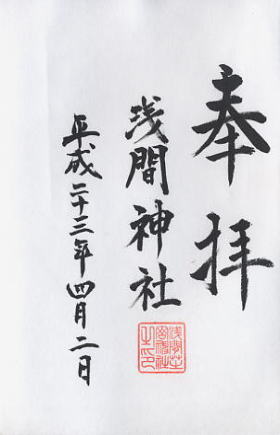 奉拝
浅間神社
平成二十三年四月二日